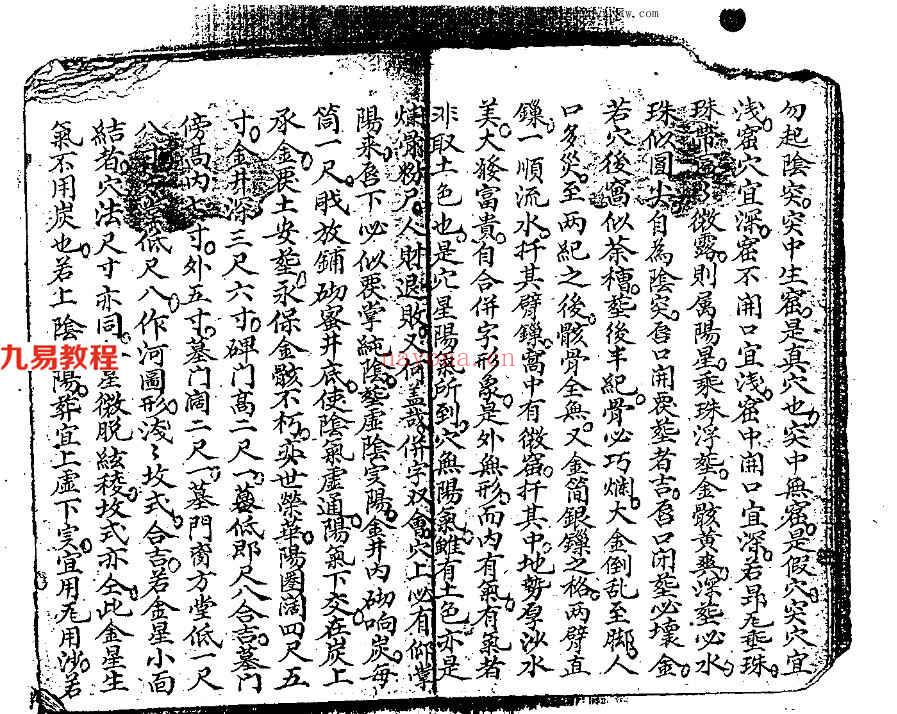 勿起陰突。突中生窟。是真穴也。突中無窟。是假穴。突穴宜
浅。窟穴宜深。窟不開口宜浅。窟中開口宜深。若昂尾垂珠。
珠 微露。則属陽星。乘珠浮塟。金骸黄爽。深塟必水。
珠似圓尖。自為陰突。唇口開要塟者吉。唇口闭塟必壊金。
若穴後窩似茶槽。塟後半紀骨必巧爛。大金倒乱至脚。人
口多災。至两紀之後。骸骨全無。又金筒銀鏁之格。两臂直
鏁一順流水。扦其臂鏁窩中有微窟。扦其中。地勢厚。沙水
美。大發富貴。自合併字形象。是外無形。而内有氣。有氣者
非取土色也。是穴星陽氣所到。穴無陽氣。雖有土色亦是
爛骨粉尸。人財退敗。又 蓋哉。併字双會。穴上必有仰掌
陽来。唇下必似要掌純陰。塟虚陰实陽。金井内砌响炭。每
筒一尺。戝放鋪砌蜜井底。使陰氣虚通。陽氣下交。在炭上
承金要土安塟。永保金骸不朽。奕世榮華。陽圏濶四尺五
寸。金井深三尺六寸。碑门髙二尺一。墓低郎尺八合吉。墓门
傍髙内 寸。外五寸。墓门阔二尺一。墓門窗方堂低一尺
八。 堂低尺八。作河圖形。浅々坟式合吉。若金星小面
結者。穴法尺寸亦同。 星微脱絃稜。坟式亦仝。此金星生
氣不用炭也。若上陰 陽。葬宜上虚下实。宜用尾用沙。若
九易教程
nayona.cn